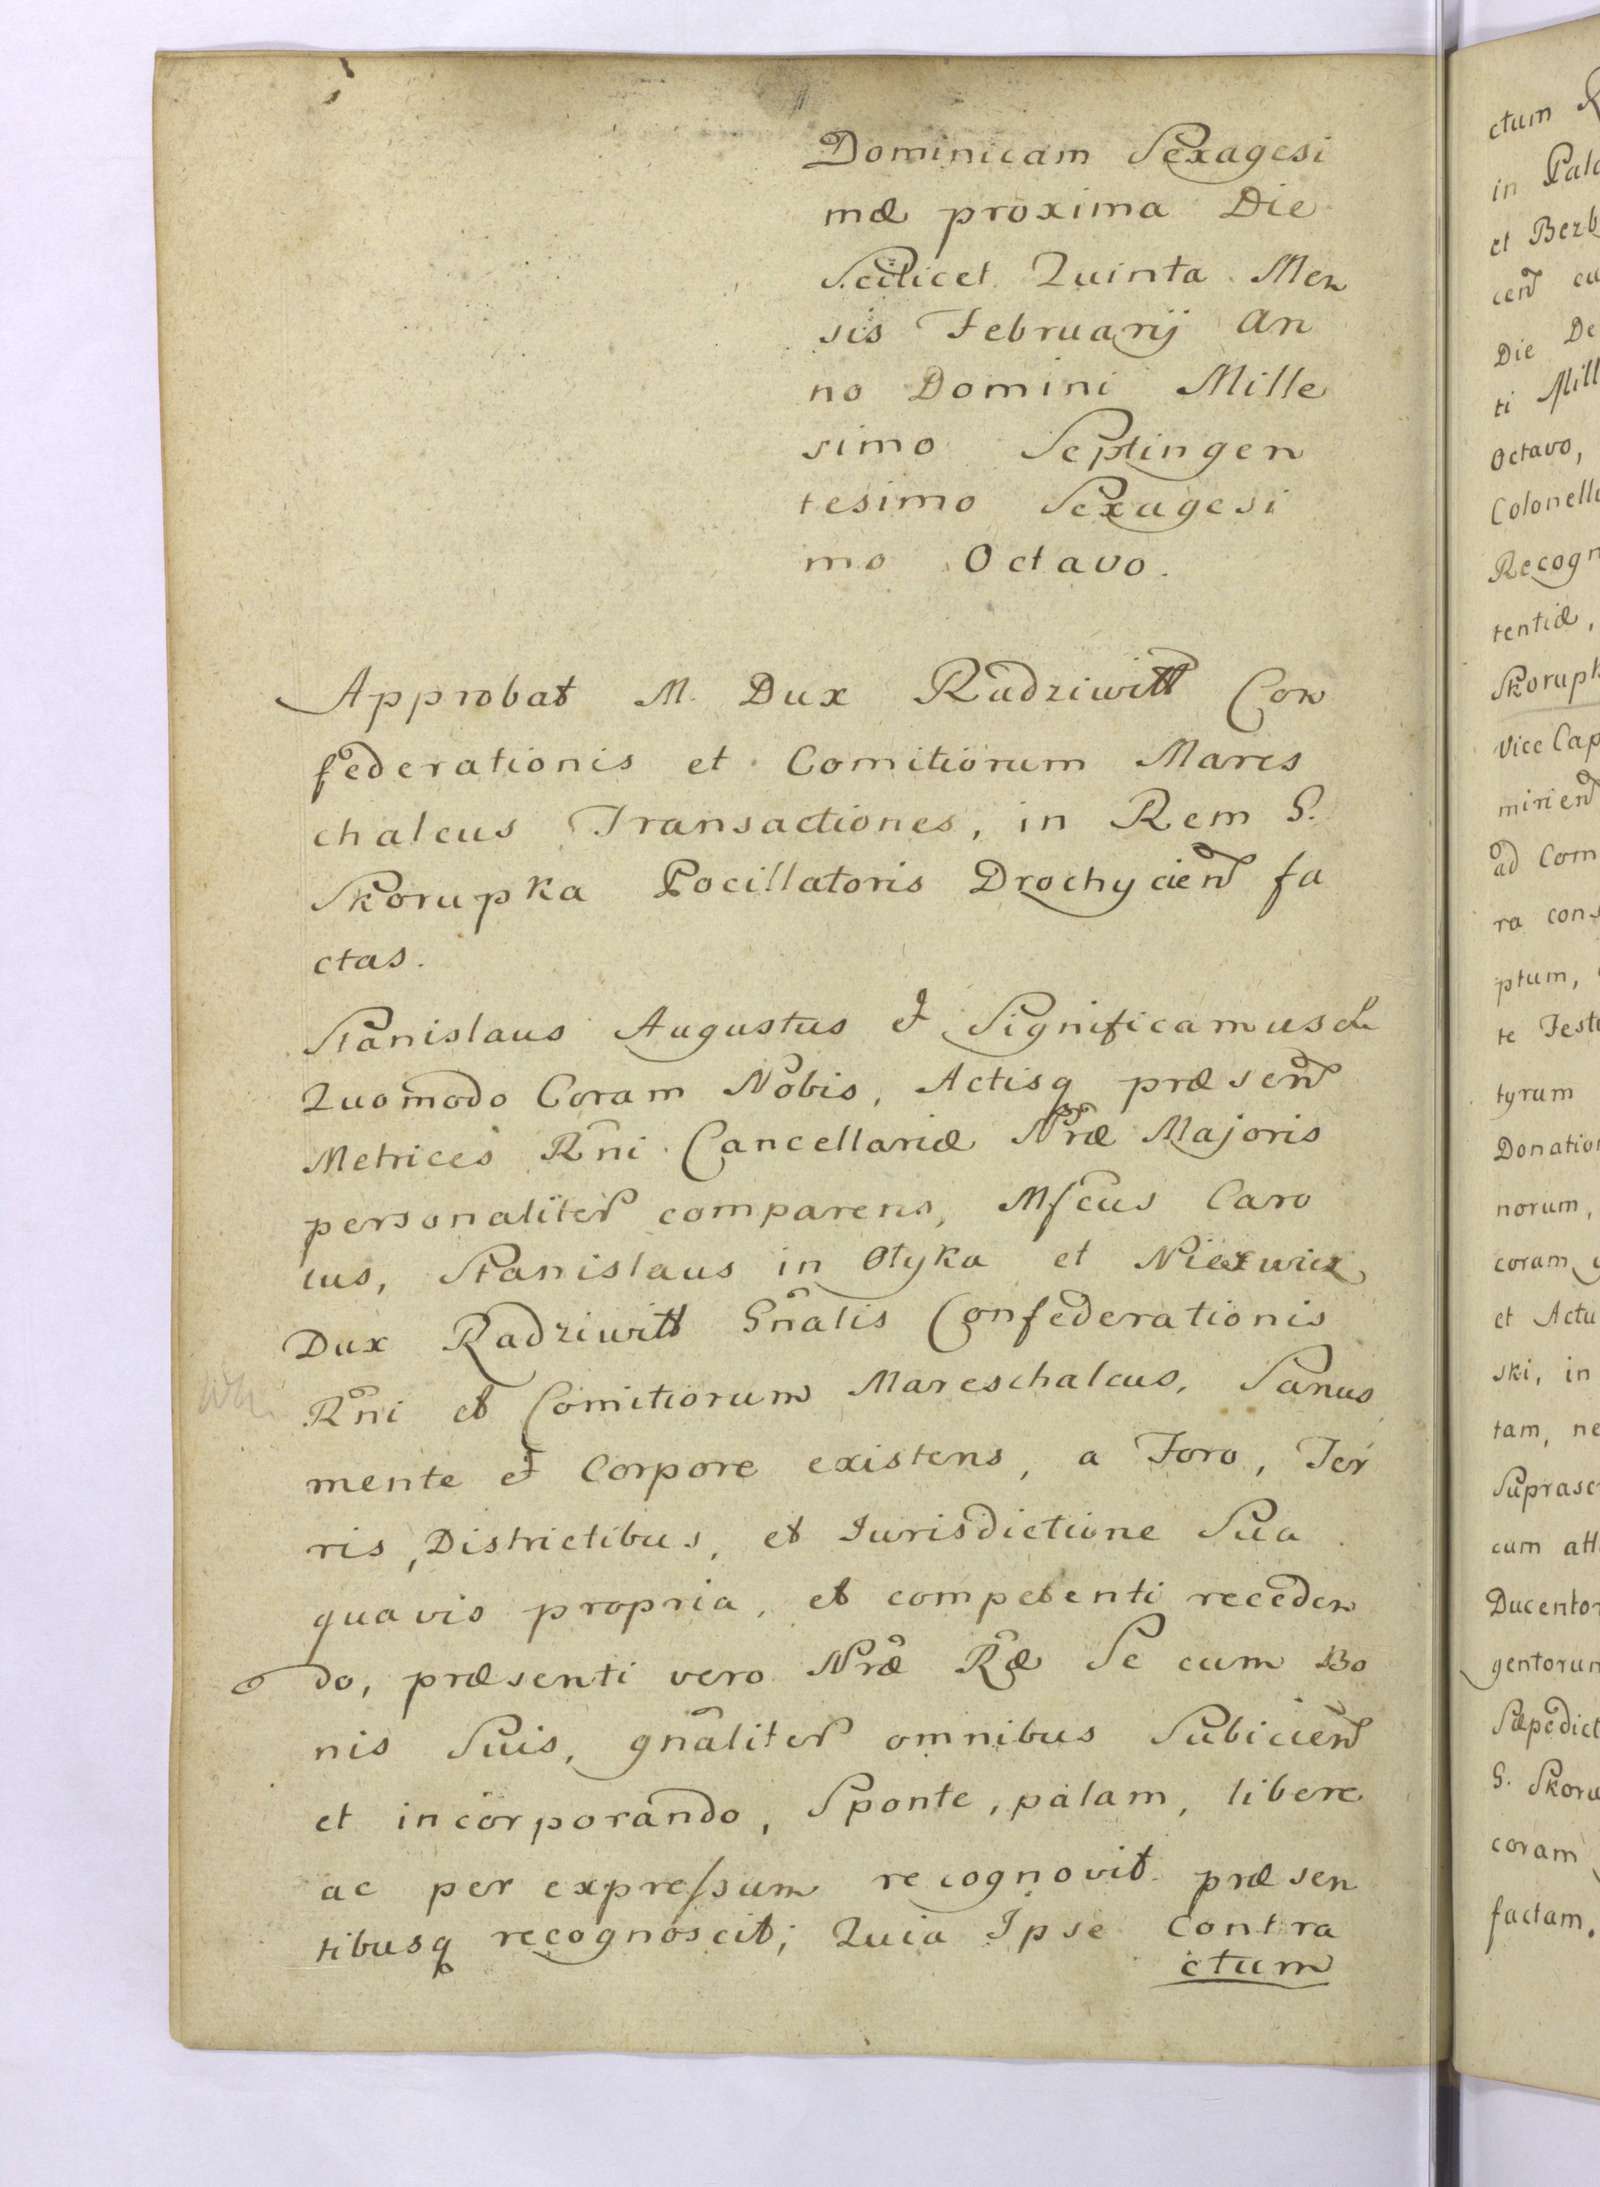 Dominicam Sexagesi
mæ proxima Die
Scilicet Quinta Men
sis Februarij An
no Domini Mille
simo Septingen
tesimo Sexagesi
mo Octavo.
Approbat M. Dux Radziwiłł Con
federationis et Comitiorum Mares
chalcus Transactiones, in Rem G.
Skorupka Pocillatoris Drochycien fa
ctas.
Stanislaus Augustus & Significamus &
Quomodo Coram Nobis, Actisq præsen
Metrices Rni Cancellariæ Nræ Majoris
personaliter comparens, Mfcus Caro
lus, Stanislaus in Ołyka et Nieswicz
Dux Radziwiłł Gnalis Confederationis
Rni et Comitiorum Mareschalcus, Sanus
mente et Corpore existens, a Foro, Ter
ris, Districtibus, et Jurisdictione Sua
quavis propria, et competenti receden
do, præsenti vero Nræ Ræ Se cum Bo
nis Suis, gnaliter omnibus Subicien
et incorporando, Sponte, palam, libere
ac per expressum recognovit præsen
tibusq recognoscit; Quia Ipse Contra
ctum
ctum
in
et
cen
Die De
ti Mill
Octavo,
Colonell
Recogn
tentiæ,
Skorupk
Vice Cap
mirien
ad Com
ra cons
ptum,
te Test
tyrum
Donation
norum,
coram
et Actu
ski, in
tam, ne
Suprasc
cum att
Ducentor
gentorum
Sæpedict
G. Skoru
coram
factam.